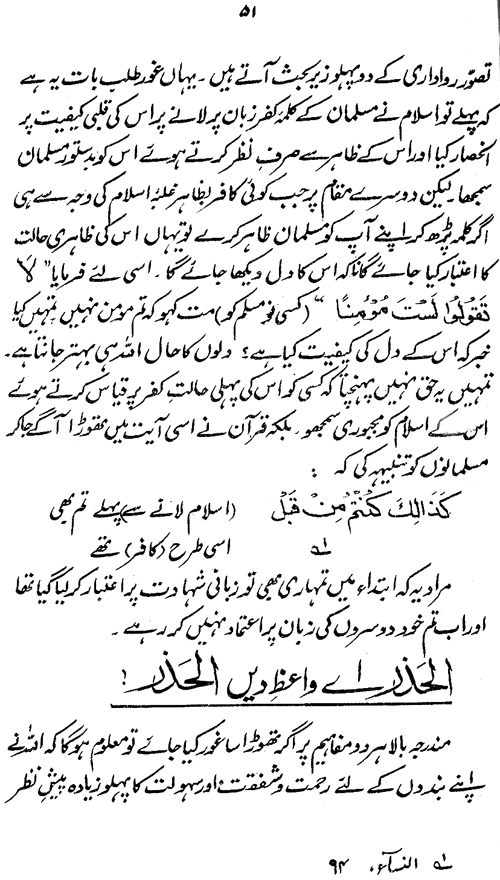 ۵۱
تصوّر رواداری کے دو پہلو زیر بحث آتے ہیں۔ یہاں غور طلب بات یہ ہے
کہ پہلے تو اسلام نے مسلمان کے کلمۂ کفر زبان پر لانے پر اس کی قلبی کیفیت پر
انحصار کیا اور اس کے ظاہر سے صرفِ نظر کرتے ہوئے اس کو بدستور مسلمان
سمجھا۔ لیکن دوسرے مقام پر جب کوئی کافر بظاہر غلبۂ اسلام کی وجہ سے ہی
اگر کلمہ پڑھ کر اپنے آپ کو مسلمان ظاہر کرے تو یہاں اس کی ظاہری حالت
کا اعتبار کیا جائے گا نا کہ اس کا دل دیکھا جائے گا۔ اسی لئے فرمایا " لَا
تَقُولُوا لَسْتَ مُؤْمِنًا " (کسی نو مسلم کو) مت کہو کہ تم مومن نہیں تمہیں کیا
خبر کہ اس کے دل کی کیفیت کیا ہے؟ دلوں کا حال اللہ ہی بہتر جانتا ہے۔
تمہیں یہ حق نہیں پہنچتا کہ کسی کو اس کی پہلی حالتِ کفر پر قیاس کرتے ہوئے
اس کے اسلام کو مجبوری سمجھو۔ بلکہ قرآن نے اسی آیت میں تھوڑا آگے جا کر
مسلمانوں کو تنبیہہ کی کہ :
كَذَالِكَ كُنْتُمْ مِنْ قَبْلُ (اسلام لانے سے) پہلے تم بھی
۱؎ اسی طرح (کافر) تھے
مراد یہ کہ ابتداء میں تمہاری بھی تو زبانی شہادت پر اعتبار کر لیا گیا تھا
اور اب تم خود دوسروں کی زبان پر اعتماد نہیں کر رہے۔
الحذر اے واعظِ دیں الحذر !
مندرجہ بالا ہر دو مفاہیم پر اگر تھوڑا سا غور کیا جائے تو معلوم ہو گا کہ اللہ نے
اپنے بندوں کے لئے رحمت و شفقت اور سہولت کا پہلو زیادہ پیشِ نظر
۱؎ النساء، ۹۴